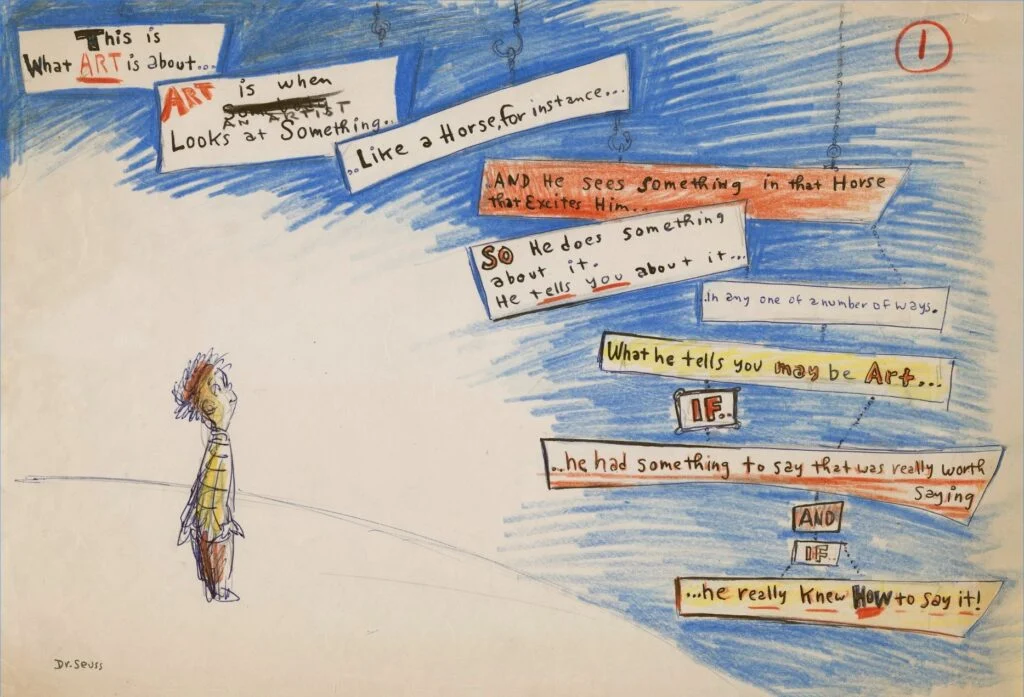 1
This is
What ART is about...
ART is when
AN ARTIST
Looks at Something..
..Like a Horse, for instance...
..AND He sees something in that Horse
that Excites Him...
SO He does something
about it.
He tells you about it...
..In any one of a number of ways.
What he tells you may be Art...
IF..
...he had something to say that was really worth
saying
AND
IF..
...he really knew HOW to say it!
Dr. Seuss